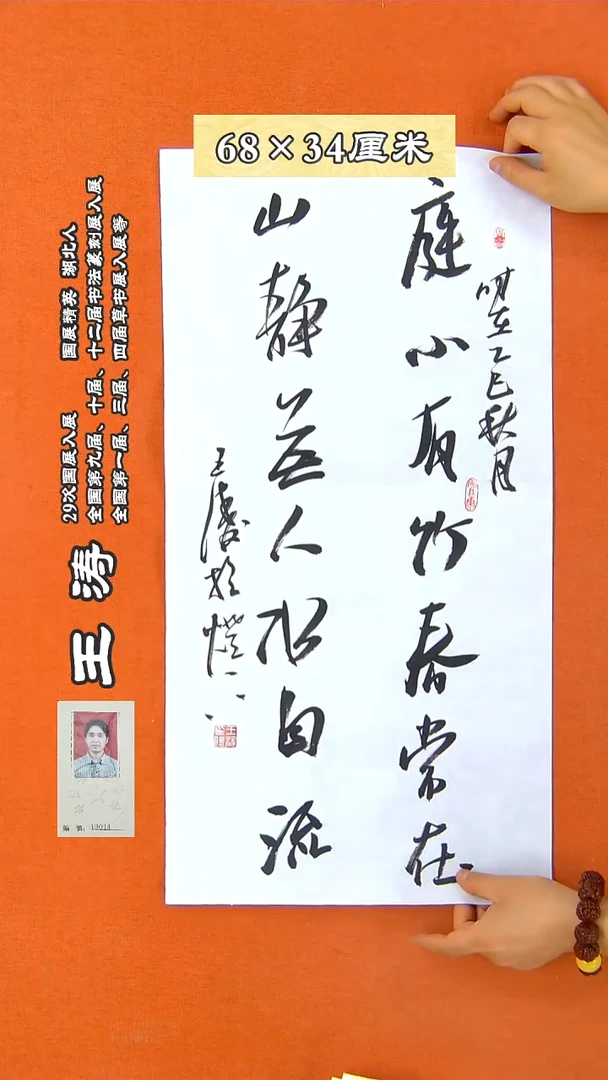 68×34厘米
庭小有竹春常在
时在乙巳秋月
山静無人水自流
王涛於
29次国展入展 国展精英 湖北人
全国第九届、十届、十二届书法篆刻展入展
全国第一届、三届、四届草书展入展等
王涛
編號：